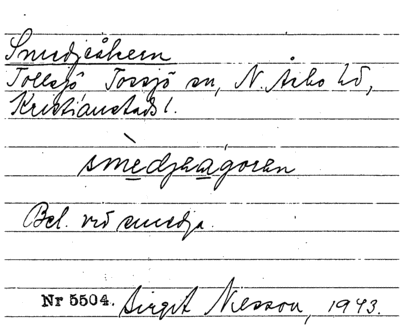 Smedjeåkern
Tollsjö Tossjö sn, N. Åsbo hd,
Kristianstads l.
smedjeagoren
Bel. vid smedja.
Nr 5504. Birgit Nilsson, 1943.